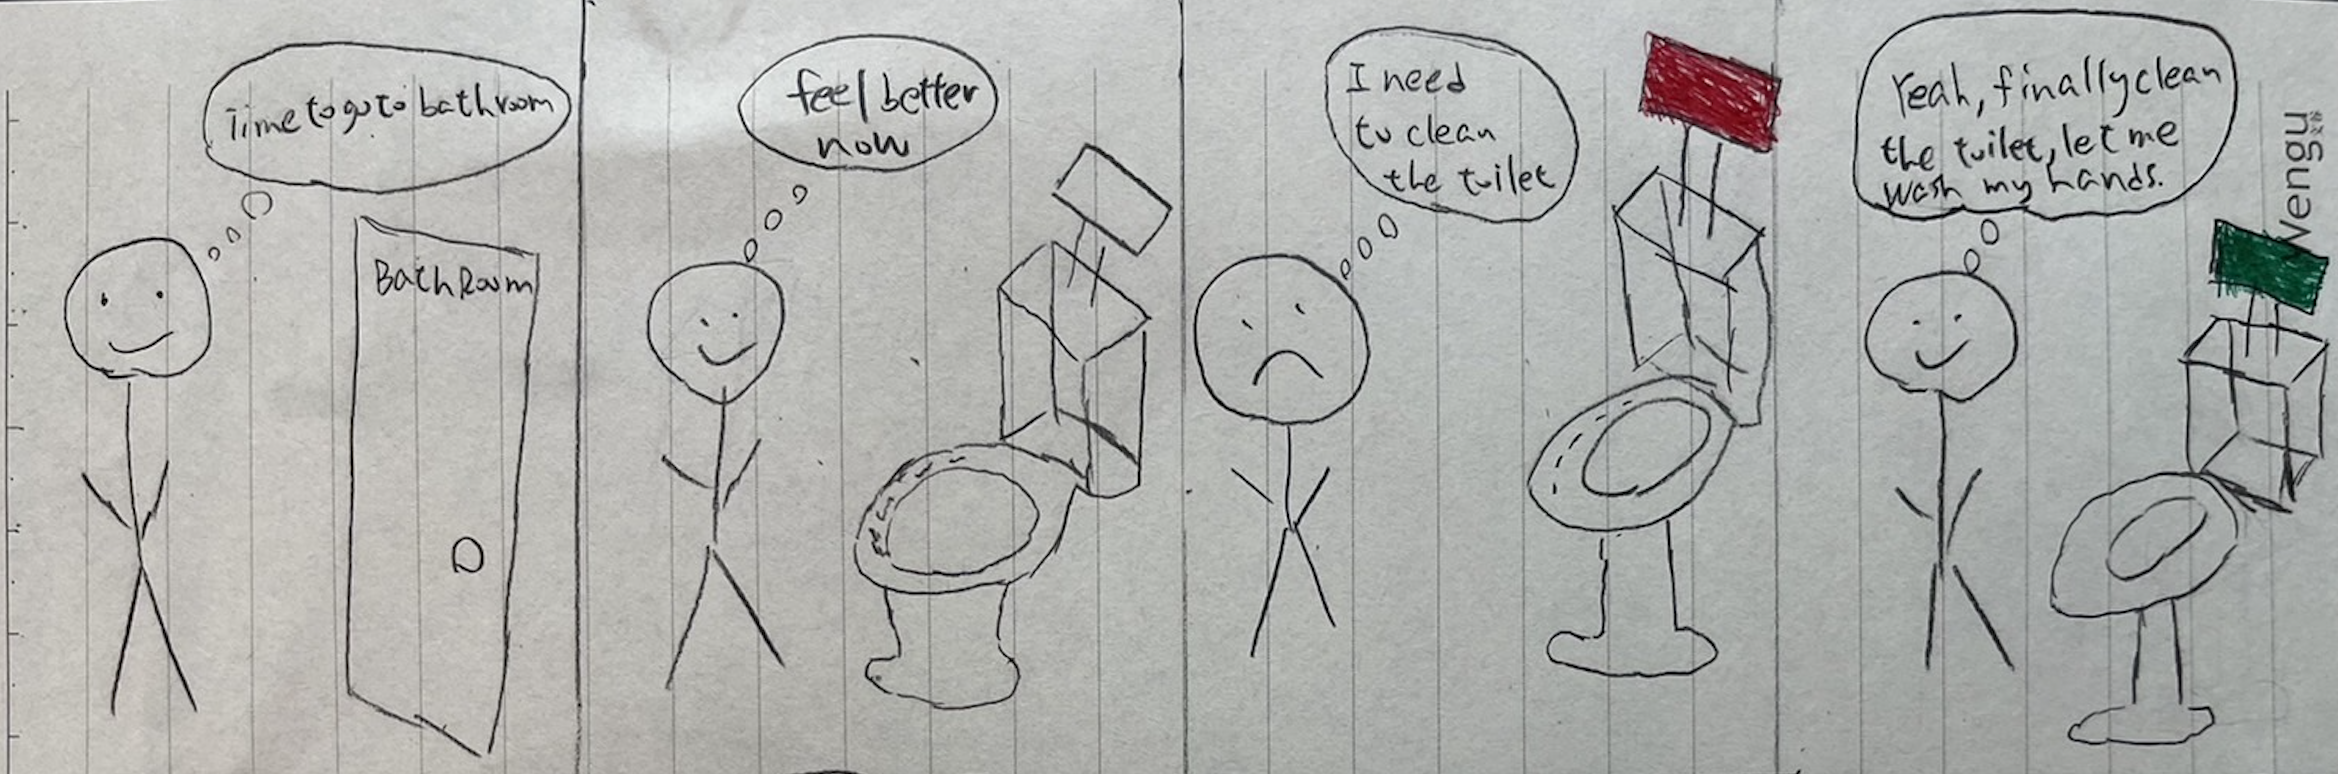 Time to go to bathroom
BathRoom
feel better
now
I need
to clean
the toilet
Yeah, finally clean
the toilet, let me
wash my hands.